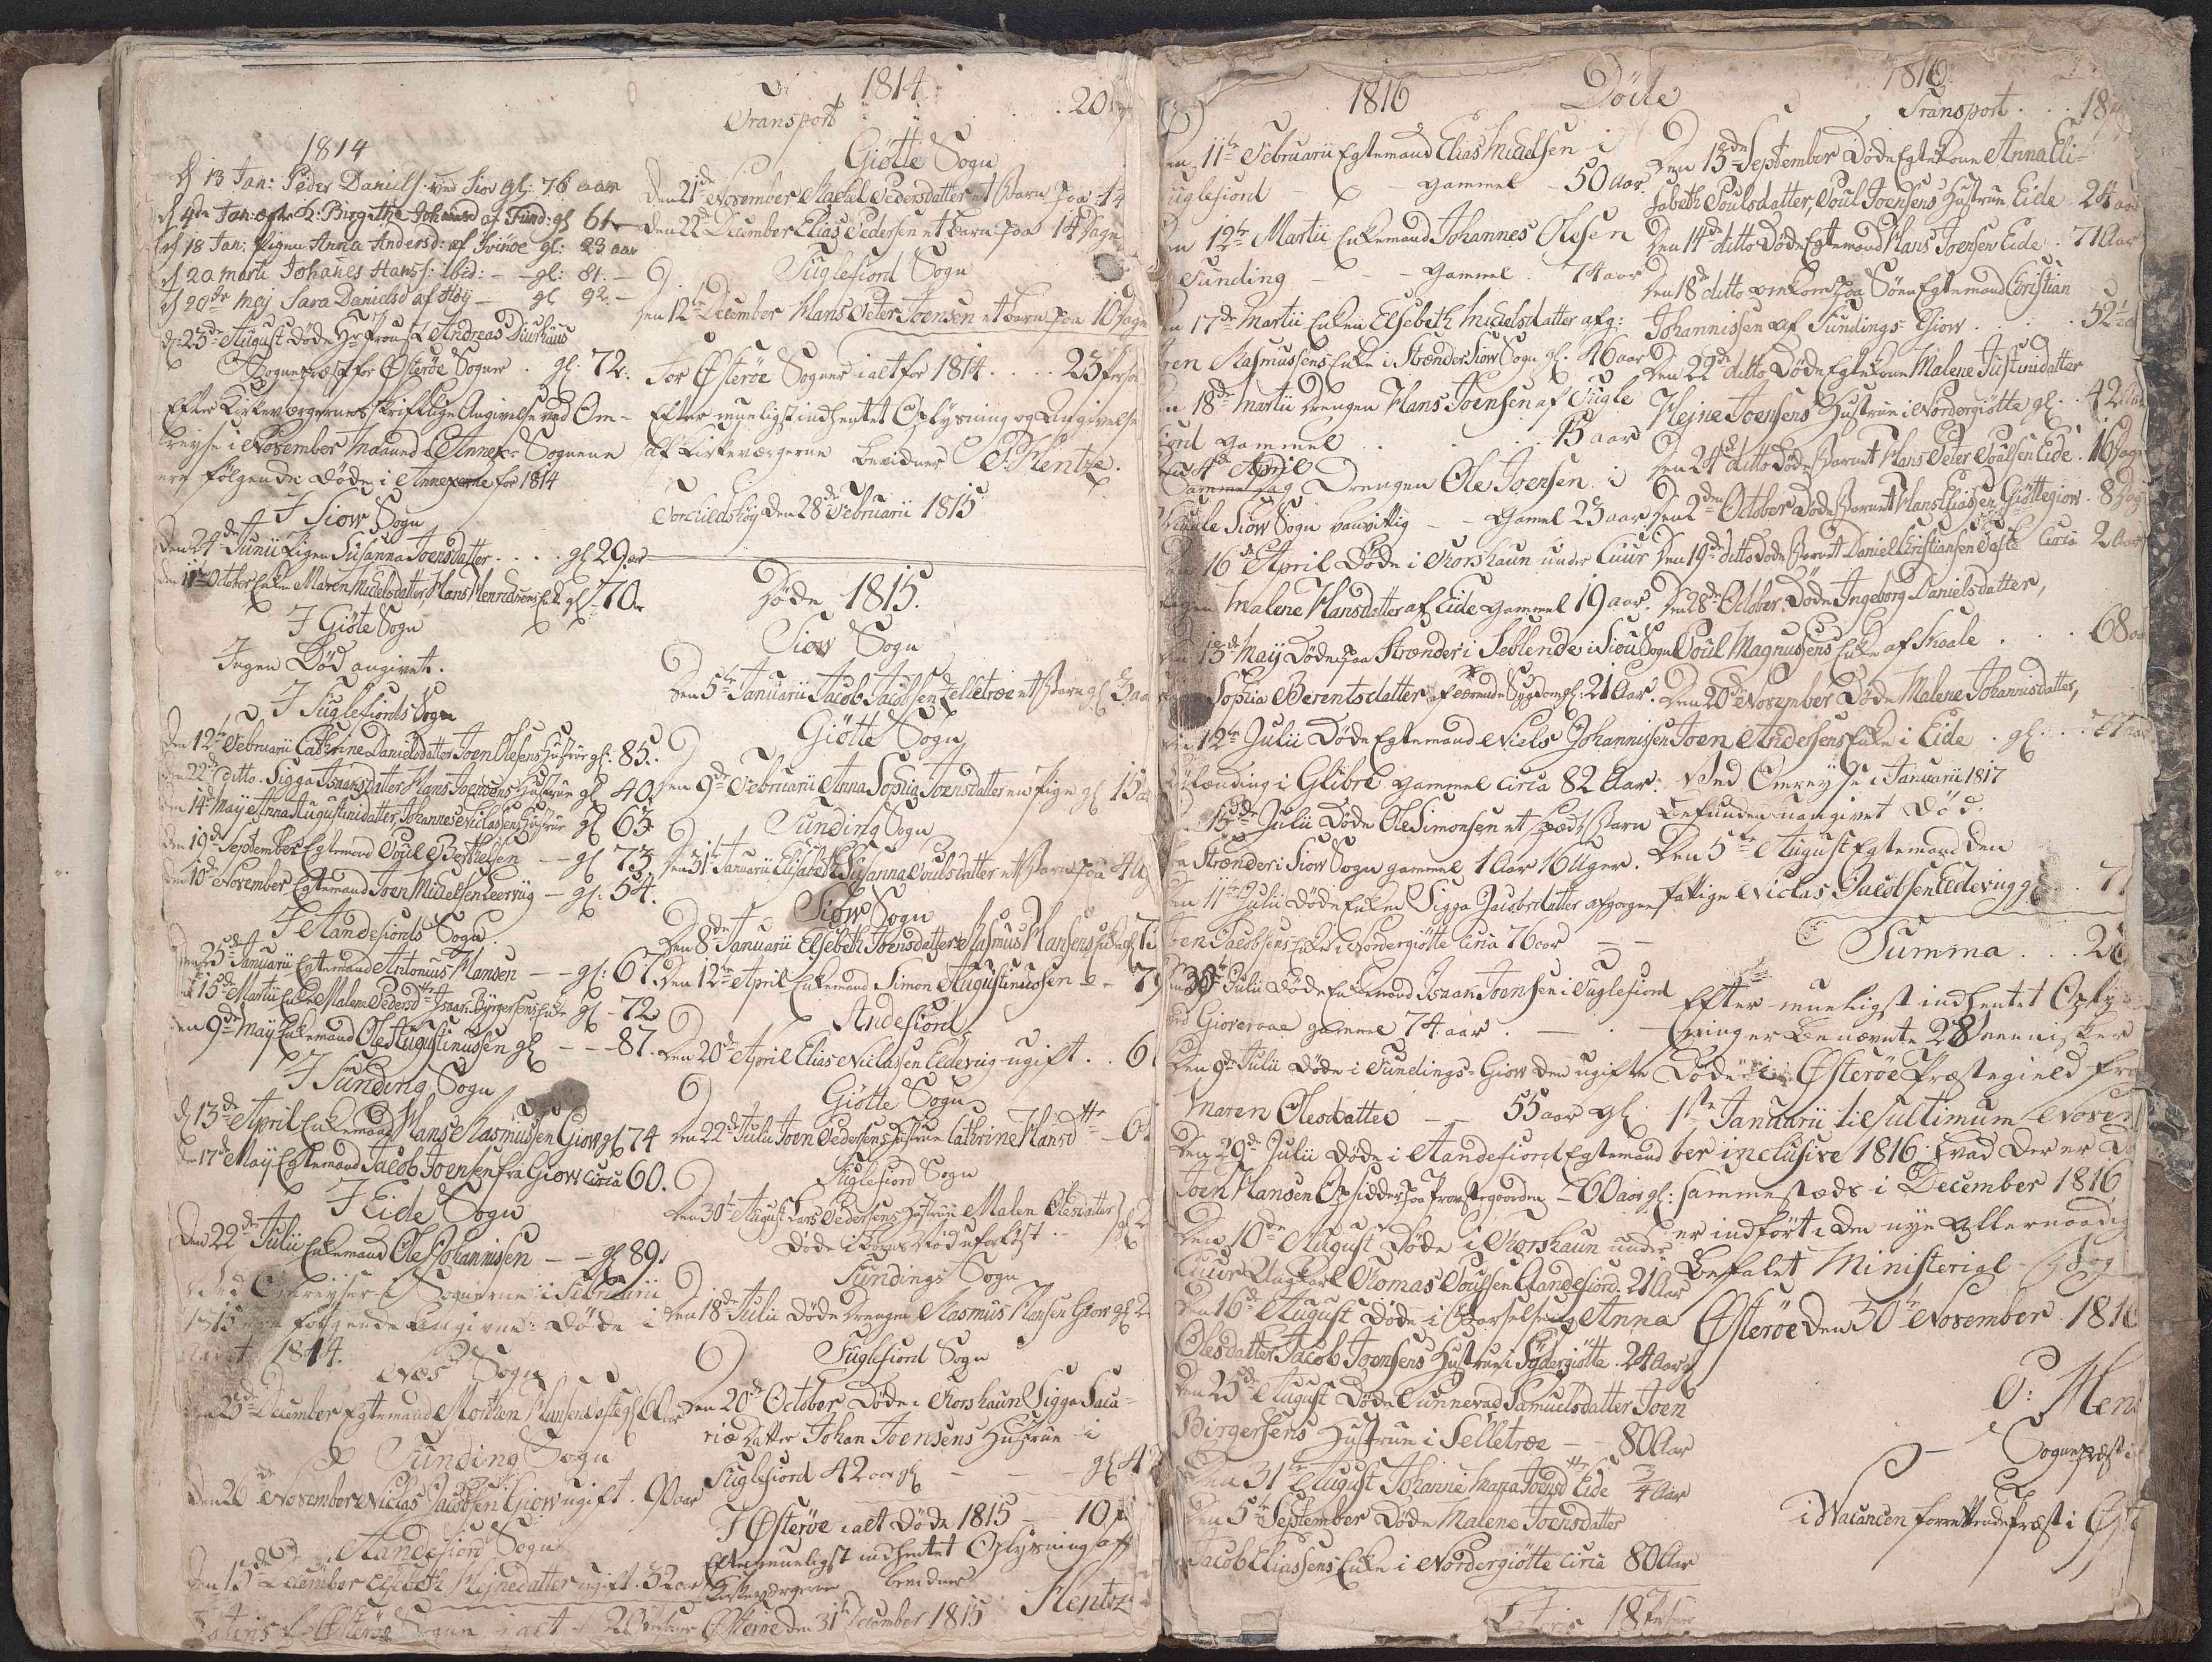 1814
d 13 Jan: Peder Daniels: ved Siov gl: 76 aar
d 4de Jan: Birgithe Johansd af Fund: gl 61
d 18 Jan: Pigen Anna Andersd: af gl: 23 aar
d 20 marti Johanes Hanss: ibid: - - gl: 81. -
d 20de Maj Sara Danielsd af Høj - gl 92. -
d: 25de August døde Hr Proust Andreas Diurhuus
Sognepræst for Østerøe Sogner . gl: 72.
Efter Kirkeværgernes skriftlige Angivelse ved Om-
reyse i November Maaned i Annex- Sognene
ere følgende døde i Annexerne for 1814
I Siow Sogn
den 24de Junii Pigen Susanna Joensdatter . . . gl 29. aar
den 11te October Enken Maren Michelsdatter, Hans Henrichsens Enke gl - 70
I Giøte Sogn
Ingen Død angivet.
I Fuglefiords Sogn
den 12te Februarii Cathrine Danielsdatter Joen Olesens Hustrue gl: 85.
den 22de ditto. Sigga Isaacsdatter Hans Joensens Hustrue gl 40
den 14de Maij Anna Augustinidatter, Johannes Niclassens Hustrue gl 63.
den 19de September Egtemand Poul Berthelsen - - gl 73
den 10de November Egtemand Joen Michelsen Leervig - gl: 54.
I Andefiords Sogn.
den 25de Januarii Egtemand Antonius Hansen - - gl: 67.
den 15de Martii Enke Malene Pedersdtr Isaac Byrgersens Enke gl - 72
den 9de Maij Enkemand Ole Augustinussen gl - - 87.
I Funding Sogn
d 13de April Enkemand Hans Rasmussen Giow gl 74
den 17de Maij Egtemand Jacob Joensen fra Giow circa 60.
I Eide Sogn
den 22de Julii Enkemand Ole Johannissen - - gl 89.
Ved Omreyser i Sognerne i Februarii
1815 følgende Angivne: døde i
1814.
Næs Sogn
den 25de December Egtemand Morten Hansen
Funding Sogn
den 26de November Niclas Jacobsen Giow ugift. 90 aar
Andefiord Sogn
den 15de December Elsebeth Hejnedatter ugift. 32 aar
1814
Transport . . . 20
Giøtte Sogn
den 21de November Rachel Pedersdatter et Barn paa 14
den 22de December Elias Pedersen et Barn paa 14 Dage
Fuglefiord Sogn
den 12te December Hans Peter Joensen et Barn paa 10 Dage
For Østerøe Sogner i alt for 1814 . . . . 23
Efter mueligst indhentet Oplysning og Angivelse
af Kirkeværgerne bevidner P: Hentze.
den 28de Februarii 1815
Døde 1815.
Siow Sogn
den 5te Januarii Jacob Jacobsen Selletræe et Barn gl 3 aar
Giøtte Sogn
den 9de Februarii Anna Sophia Joensdatter en Pige gl 15
Funding Sogn
den 31te Januarii Elisabeth Susanna Poulsdatter et Barn paa 4
Siow Sogn
den 8de Januarii Elsebeth Joensdatter Rasmus Hansens Enke gl
den 12te April Enkemand Simon Augustinussen - 79
Andefiord
den 20de April Elias Niclassen Eldevig ugift . . 6
Giøtte Sogn
den 22de Julii Joen Pedersens Hustrue Cathrine Hansdtr - 6
Fuglefiord Sogn
den 30te August Lars Pedersens Hustrue Malen Olesdatter
døde i Barns Nød uforløst . -
Fundings Sogn
den 18de Julii døde Drengen Rasmus Hansen Giow gl 2
Fuglefiord Sogn
den 20de October døde i Thorshaun Sigga Saca-
riæ datter Johan Joensens Hustrue i
Fuglefiord 42 aar gl - - - gl 42
I Østerøe i alt døde 1815 - - 10
Efter mueligst indhentet Oplysning aff
Kirkeværgerne bevidner
Østerøe den 31te December 1815 Hentze
1816 Døde
11te Februarii Egtemand Elias Michelsen i
uglefiord - - gammel - 50 Aar
12te Martii Enkemand Johannes Olesen
Funding - - - gammel . 74 aar
17de Martii Enken Elsebeth Michelsdatter afg:
Rasmussens Enke i Strænder Siow Sogn gl. 46 aar
18de Martii Drengen Hans Joensen af Fugle
fiord gammel . . . . 15 aar
4de April
Drengen Ole Joensen i
Skaale Siow Sogn vanvittig - - Gamel 23 aar
16de April døde i Thorshaun under Cuur
Malene Hansdatter af Eide gammel 19 aar
13de Maij døde paa Strænder i Selletræ i Siow Sogn
Sophia Berentsdatter af Sygdom gl: 21 Aar
12te Julii døde Egtemand Niels Johannissen
Funding i Glibre gammel circa 82 Aar.
15de Julii døde Ole Simonsen et spædt Barn
Strænder i Siow Sogn gammel 1 Aar 16 Uger.
11te Julii døde Enken Sigga Jacobsdatter afgangne
Jacobsens Enke i Nordergiøtte circa 76 aar - -
30te Julii døde Enkemand Isaak Joensen i Fuglefiord
ved Gioveraae gammel 74 aar . -
den 9de Julii døde i Fundings-Giow den ugifte
Maren Olesdatter - - 55 aar gl
den 29de Julii døde i Andefiord Egtemand
Joen Hansen Opsidder paa Provstegaarden - 60 aar gl:
den 10de August døde i Thorshaun under
Cuur Ungkarl Thomas Poulsen Andefiord. 21 Aar
den 16de August døde i Barselseng Anna
Olesdatter Jacob Joensens Hustrue i Sydergiøtte. 24 Aar
den 25de August døde Sunneva Samuelsdatter Joen
Birgersens Hustrue i Selletræe - - 80 Aar
den 31te August Johanne Maria Joensdtr Eide 3/4 Aar
den 5te September døde Malene Joensdatter
Jacob Eliassens Enke i Nordergiøtte circa 80 Aar
18
1816
Transport . . 18
den 13de September døde Egtekone Anna Eli-
sabeth Poulsdatter, Poul Joensens Hustrue Eide . 24 aar
den 14de ditto døde Egtemand Hans Joensen Eide . 71 Aar
den 18de ditto omkom paa Søen Egtemand Christian
Johannissen af Fundings-Giow . . . . 52 1/2
den 22de ditto døde Egtekone Malene Justinidatter
Hejne Joensens Hustrue i Nordergiøtte gl. . 42
den 24de ditto døde Barnet Hans Peter Poulsen Eide . 16 Dage
den 2den October døde Barnet Hans Eliassen Giøttegiow . 8 Dage
den 19de ditto døde Barnet Daniel Christiansen circa 2 Aar
den 28de October døde Ingeborg Danielsdatter,
Poul Magnussens Enke af Skaale . . . 68
den 20de November døde Malene Johannisdatter,
Joen Andersens Enke i Eide . gl . .
Ved Omreyse i Januarii 1817
befunden uangivet død.
den 5te August Egtemand den
fattige Niclas Jacobsen Eldevig gl . . 7
Summa . . . 28
Efter mueligst indhentet Oply
sning er benævnte 28 mennisker
døde i Østerøe Præstegield fra
1ste Januarii til ultimum Novem
ber inclusive 1816. hvad der er
sammesteds i December 1816
er indført i den nye allernaadig
befalet Ministerial-bog
Østerøe den 30te November 1816
P: Hen
Sognepræst
i Vacancen forrettende Præst i Øst